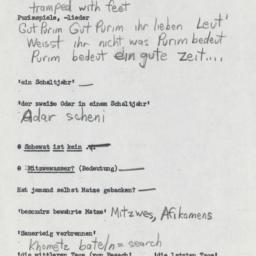 tramped with feet
Purimspiele, -lieder
Gut Purim Gut Purim ihr lieben Leut'
Weisst ihr nicht was Purim bedeut
Purim bedeut ein gute zeit....
'ein Schaltjahr' —
'der zweite Odar in einem Schaltjahr'
Adar scheni
@ Schewat ist kein
@ Mitzwewasser? (Bedeutung) —
Hat jemand selbst Matze gebacken? —
'besondrs bewahrte Matze' Mitzwes, Afikomens
'Sauerteig verbrennen'
khometz baten = search
'die mittleren Tage (von Pesach)' 'die letzten Tage'